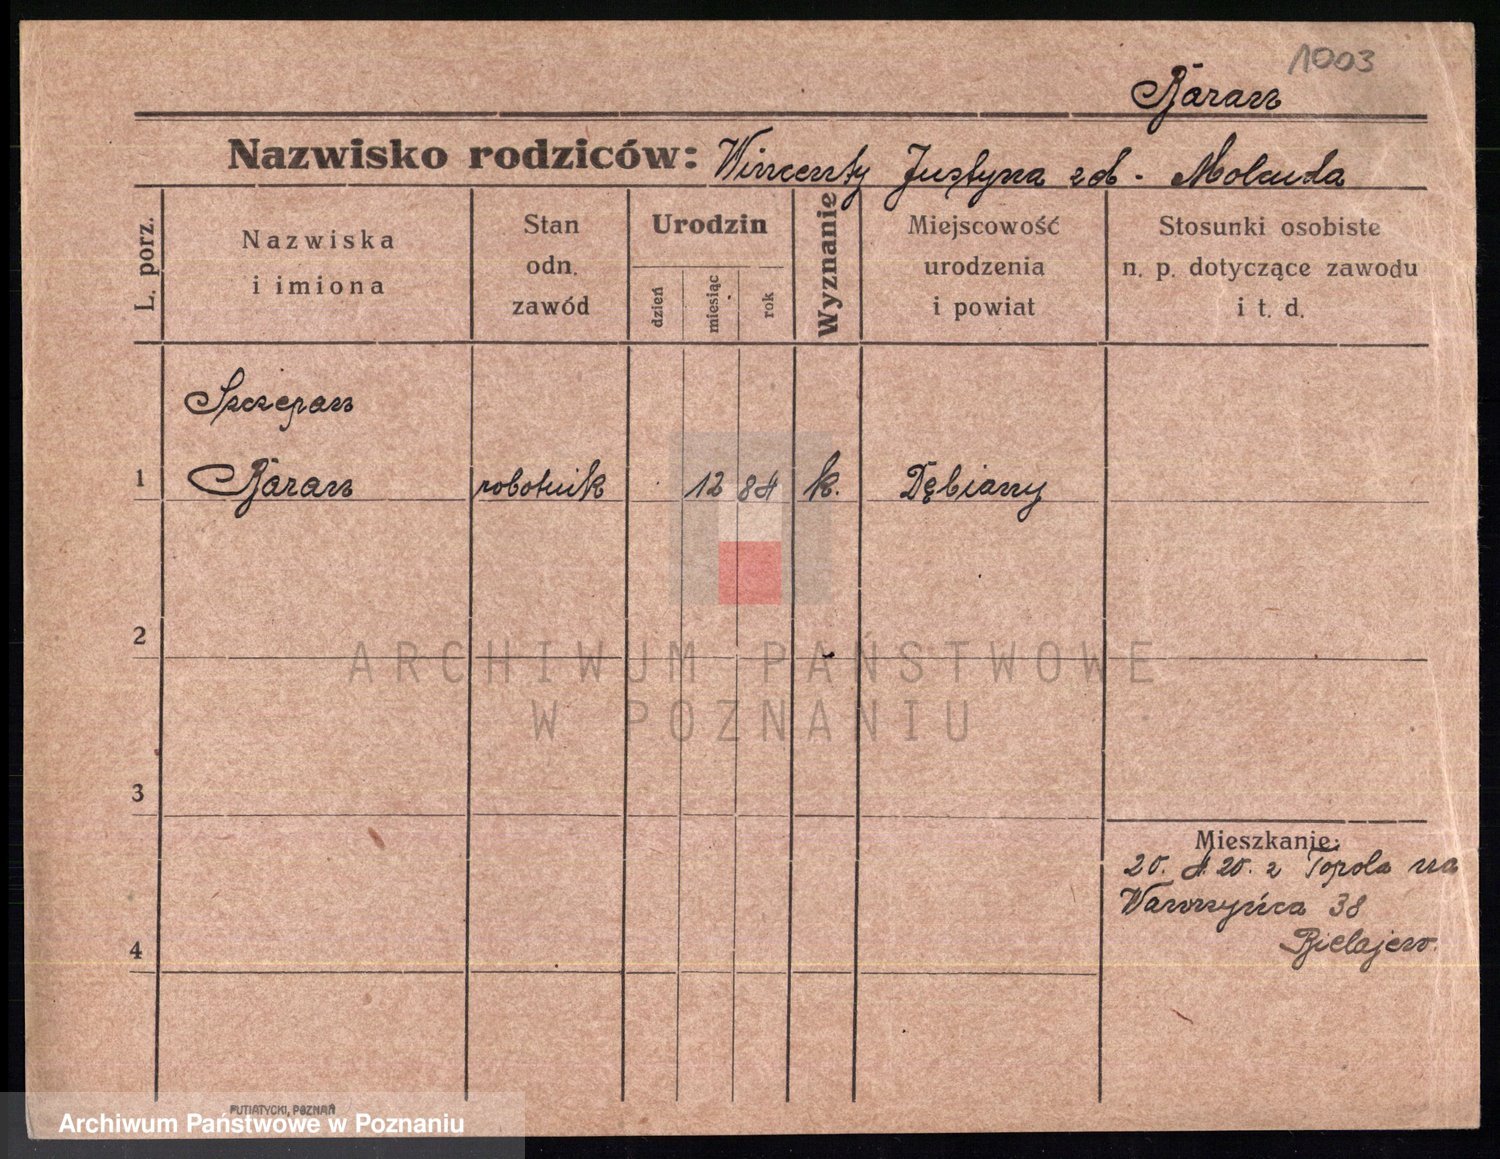 1003
Baran
Nazwisko rodziców: Wincenty Justyna zd. Mołenda
L. porz.
Nazwiska
i imiona
Stan
odn.
zawód
Urodzin
dzień
miesiąc
rok
Wyznanie
Miejscowość
urodzenia
i powiat
Stosunki osobiste
n. p. dotyczące zawodu
i t. d.
Szczepan
1 Baran robotnik 12 84 k. Dębiany
2
ARCHIWUM PAŃSTWOWE
W POZNANIU
3
Mieszkanie:
20. 4. 20. z Topola na
Wawrzyńca 38
Bielajew.
4
PUTIATYCKI, POZNAŃ
Archiwum Państwowe w Poznaniu